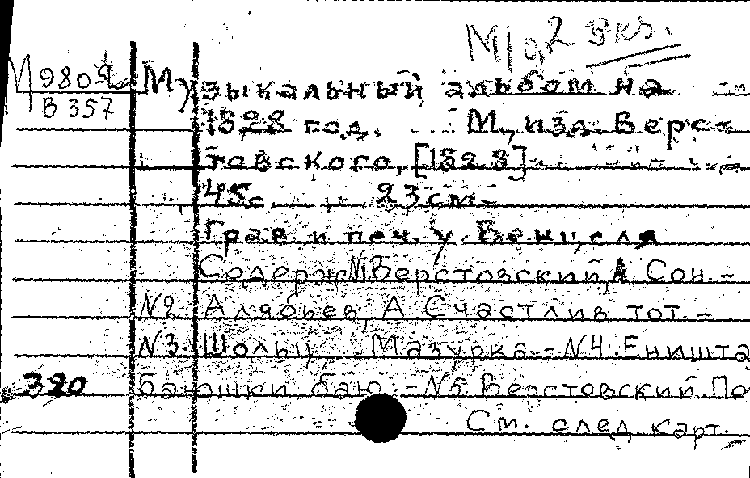 М/а 2 экз.
М 980
В 357
Музыкальный альбом на
1828 год. М., изд. Верс-
товского, [1828]
45с. 23см.
Грав. и печ. у Венцеля
Содерж: №1 Верстовский, А Сон. -
№2 Алябьев, А Счастлив тот. -
№3. Шольц Мазурка. - №4. Еништа
320 баюшки баю. - №5 Верстовский По
См. след карт.